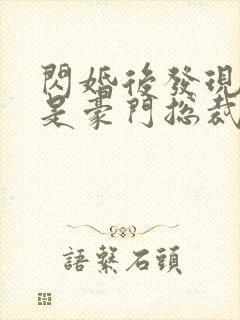 閃婚後發現
是豪門總裁
語繫石頭